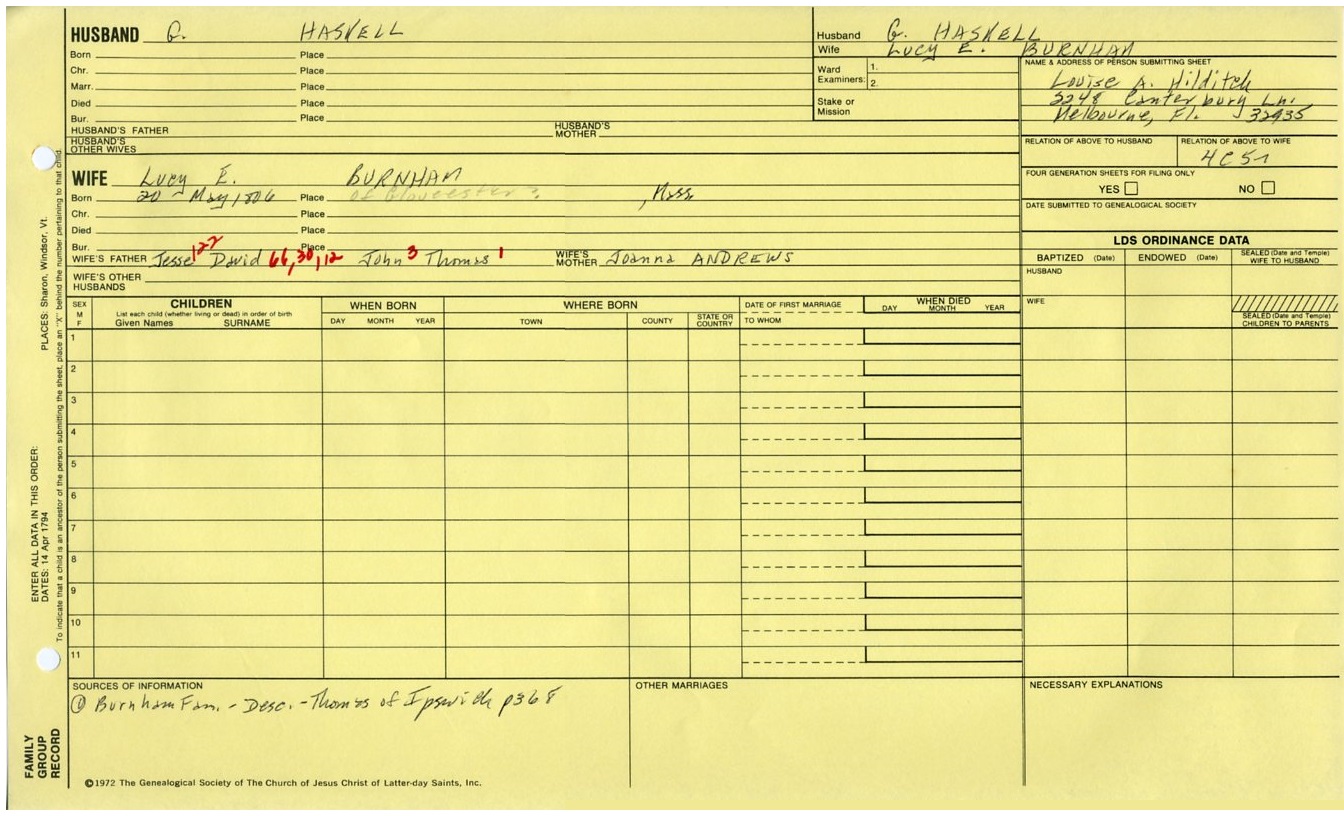 HUSBAND G. HASKELL
Born Place
Chr. Place
Marr. Place
Died Place
Bur. Place
HUSBAND'S FATHER HUSBAND'S MOTHER
HUSBAND'S OTHER WIVES
Husband G. HASKELL
Wife LUCY E. BURNHAM
Ward Examiners: 1. 2.
Stake or Mission
NAME & ADDRESS OF PERSON SUBMITTING SHEET
Louise A. Hilditch
2248 Canterbury Ln.
Melbourne, Fl. 32935
RELATION OF ABOVE TO HUSBAND RELATION OF ABOVE TO WIFE
4C5r
FOUR GENERATION SHEETS FOR FILING ONLY
YES NO
DATE SUBMITTED TO GENEALOGICAL SOCIETY
WIFE Lucy E. BURNHAM
Born 20 May 1806 Place of Gloucester ?, , Mass.
Chr. Place
Died Place
Bur. Place
WIFE'S FATHER Jesse 122 David 66,30,12 John 3 Thomas 1 WIFE'S MOTHER Joanna ANDREWS
WIFE'S OTHER HUSBANDS
LDS ORDINANCE DATA
BAPTIZED (Date) ENDOWED (Date) SEALED (Date and Temple) WIFE TO HUSBAND
HUSBAND
WIFE
SEALED (Date and Temple) CHILDREN TO PARENTS
SEX M F
CHILDREN
List each child (whether living or dead) in order of birth
Given Names SURNAME
WHEN BORN
DAY MONTH YEAR
WHERE BORN
TOWN COUNTY STATE OR COUNTRY
DATE OF FIRST MARRIAGE
TO WHOM
WHEN DIED
DAY MONTH YEAR
1
2
3
4
5
6
7
8
9
10
11
SOURCES OF INFORMATION
① Burnham Fam. - Desc. - Thomas of Ipswich p368
OTHER MARRIAGES
NECESSARY EXPLANATIONS
©1972 The Genealogical Society of The Church of Jesus Christ of Latter-day Saints, Inc.
FAMILY GROUP RECORD
ENTER ALL DATA IN THIS ORDER:
DATES: 14 Apr 1794 PLACES: Sharon, Windsor, Vt.
To indicate that a child is an ancestor of the person submitting the sheet, place an "X" behind the number pertaining to that child.